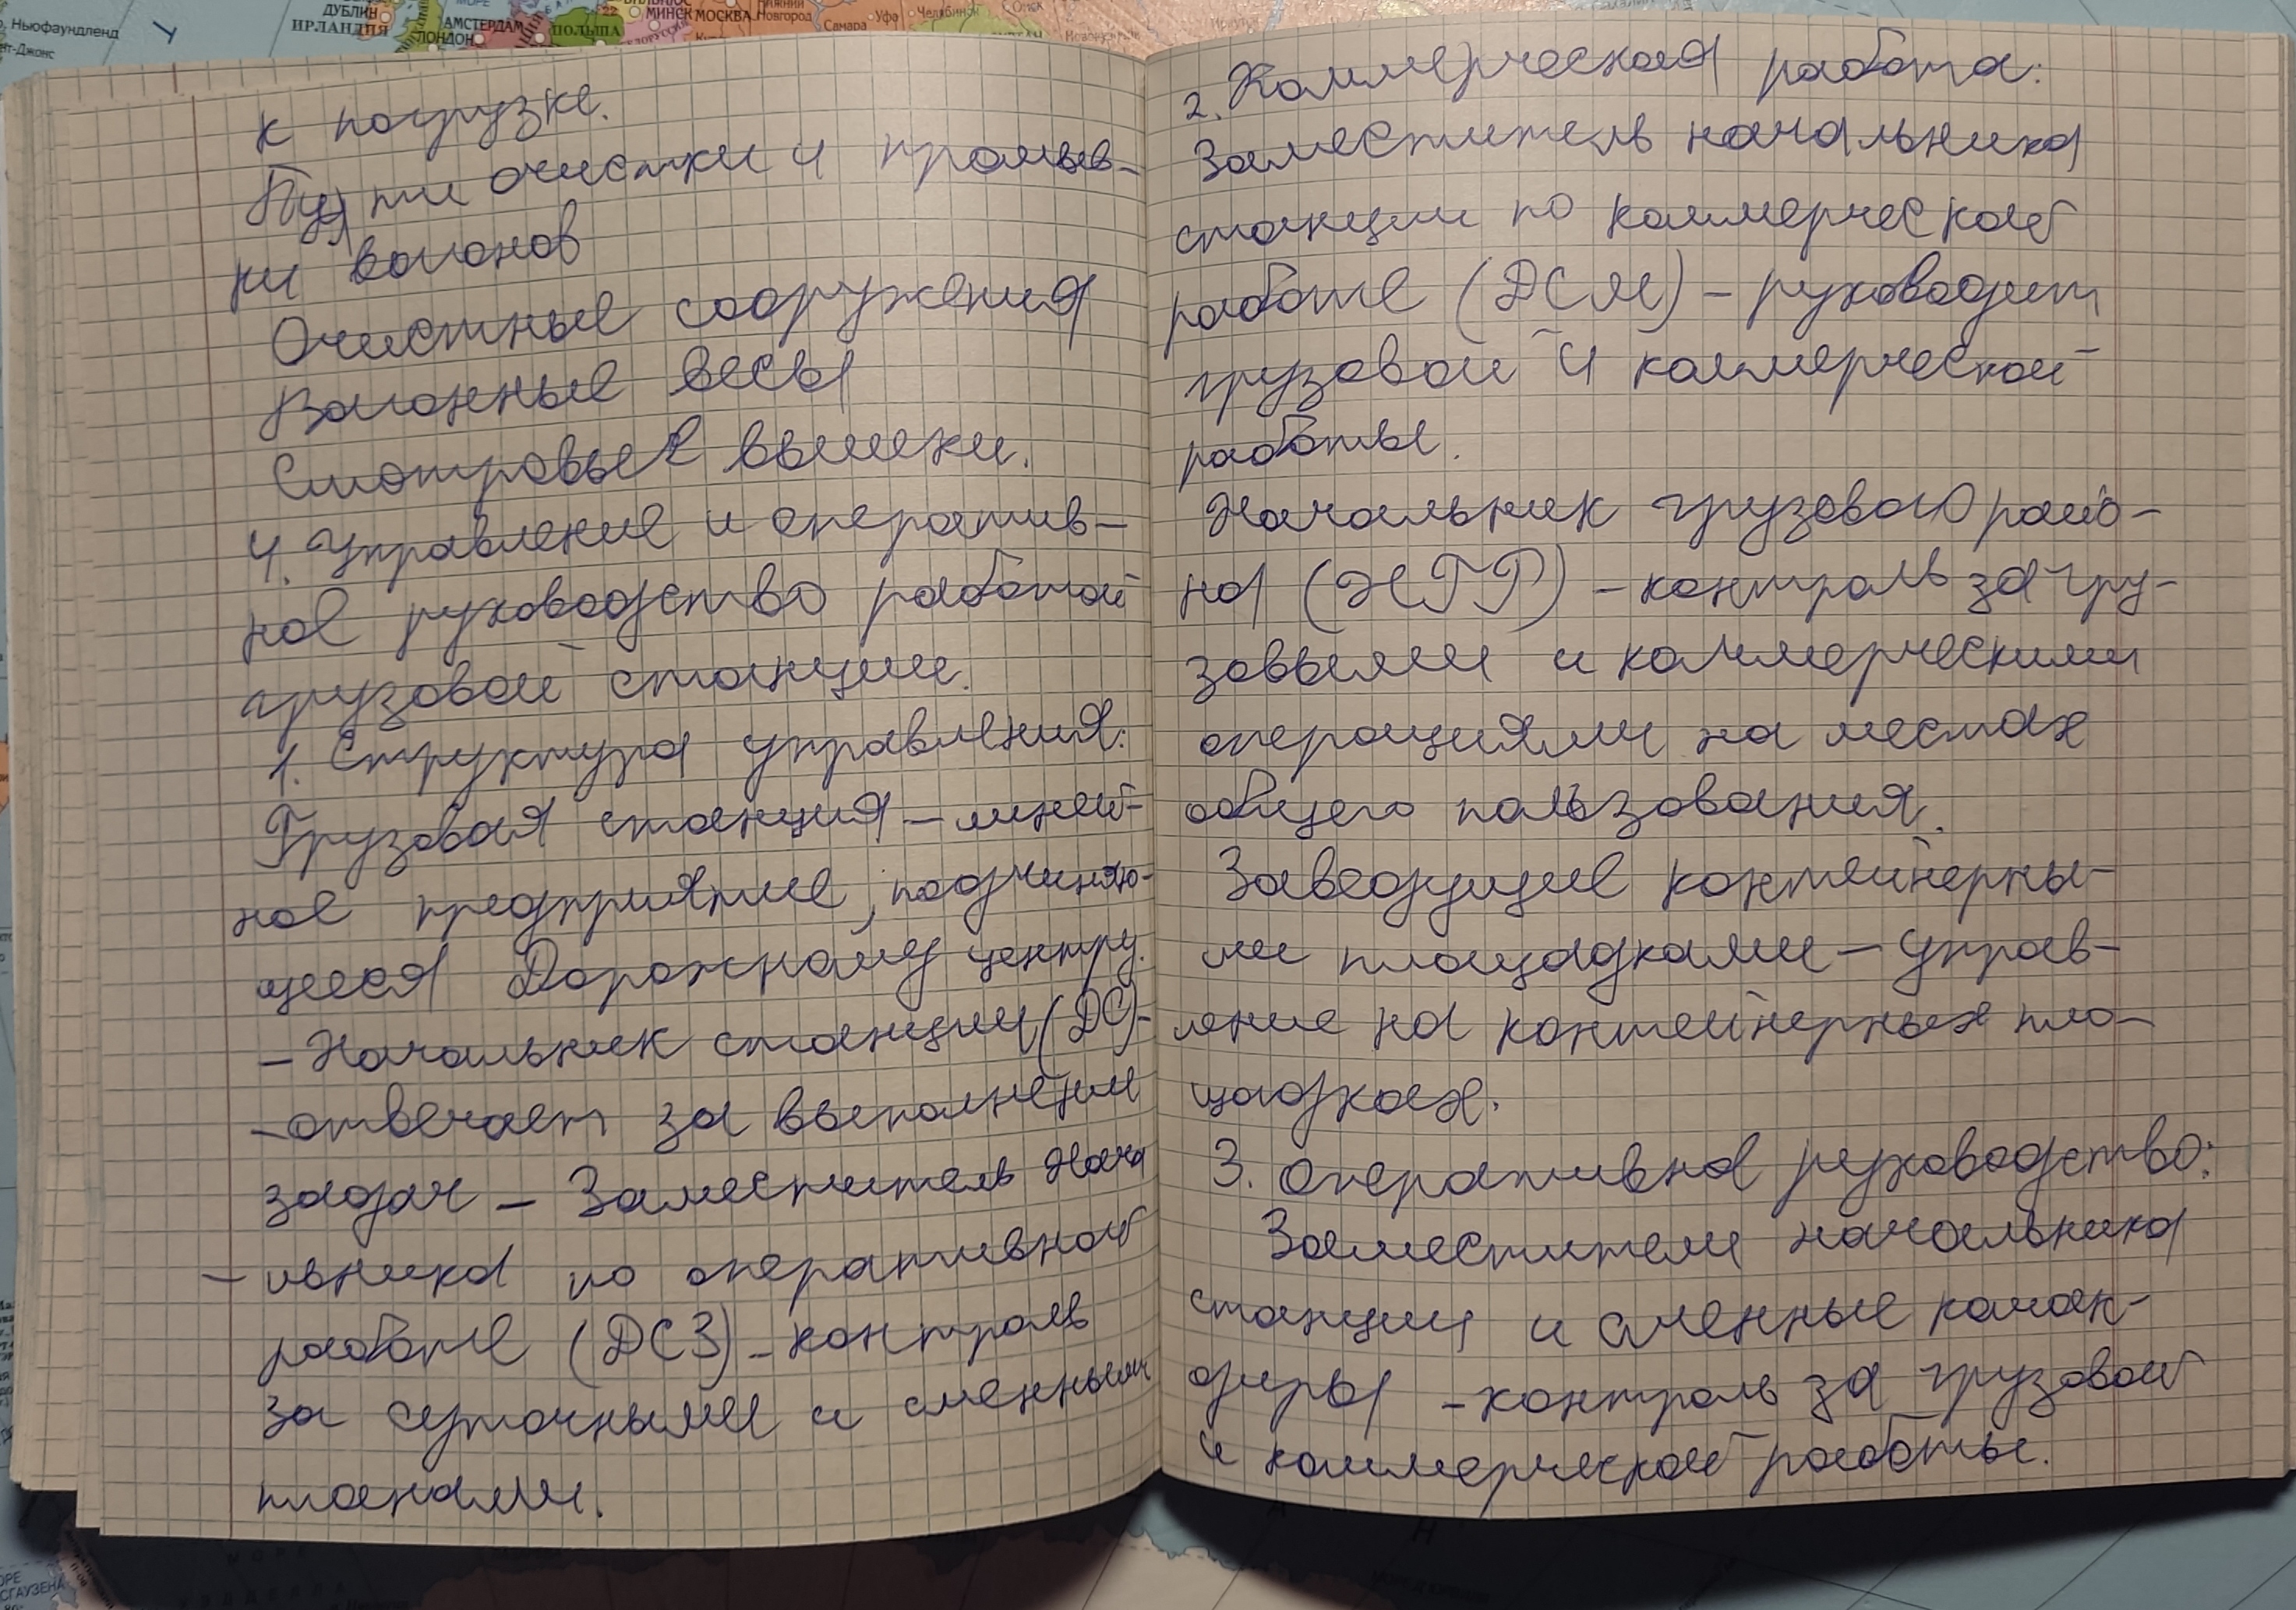 Ньюфаундленд
нт-Джонс
ДУБЛИН
ИРЛАНДИЯ
АМСТЕРДАМ
ЛОНДОН
ПОЛЬША
МИНСК
МОСКВА
Нижний
Новгород
Самара
Уфа
Челябинск
Омск
к погрузке.
Пути очистки и промыв-
ки вагонов
Очистные сооружения
Вагонные весы
Смотровые вышки.
4. Управление и оператив-
ное руководство работой
грузовой станции.
1. Структура управления:
Грузовая станция – линей-
ное предприятие, подчиняю-
щееся Дорожному центру.
– Начальник станции (ДС)-
-отвечает за выполнении
задач – Заместитель Нача
– льника по оперативной
работе (ДСЗ) – контроль
за суточными и сменными
планами.
2. Коммерческая работа:
Заместитель начальника
станции по коммерческой
работе (ДСМ) – руководит
грузовой и коммерческой
работы.
Начальник грузового райо-
на (НГР) – контроль за гру-
зовыями и коммерческими
операциями на местах
общего пользования.
Заведующие контейнерны-
ми площадками – управ-
ление на контейнерных пло-
щадках.
3. Оперативна руководство:
Заместители начальника
станции и сменные коман-
диры – контроль за грузовой
и коммерческой работы.